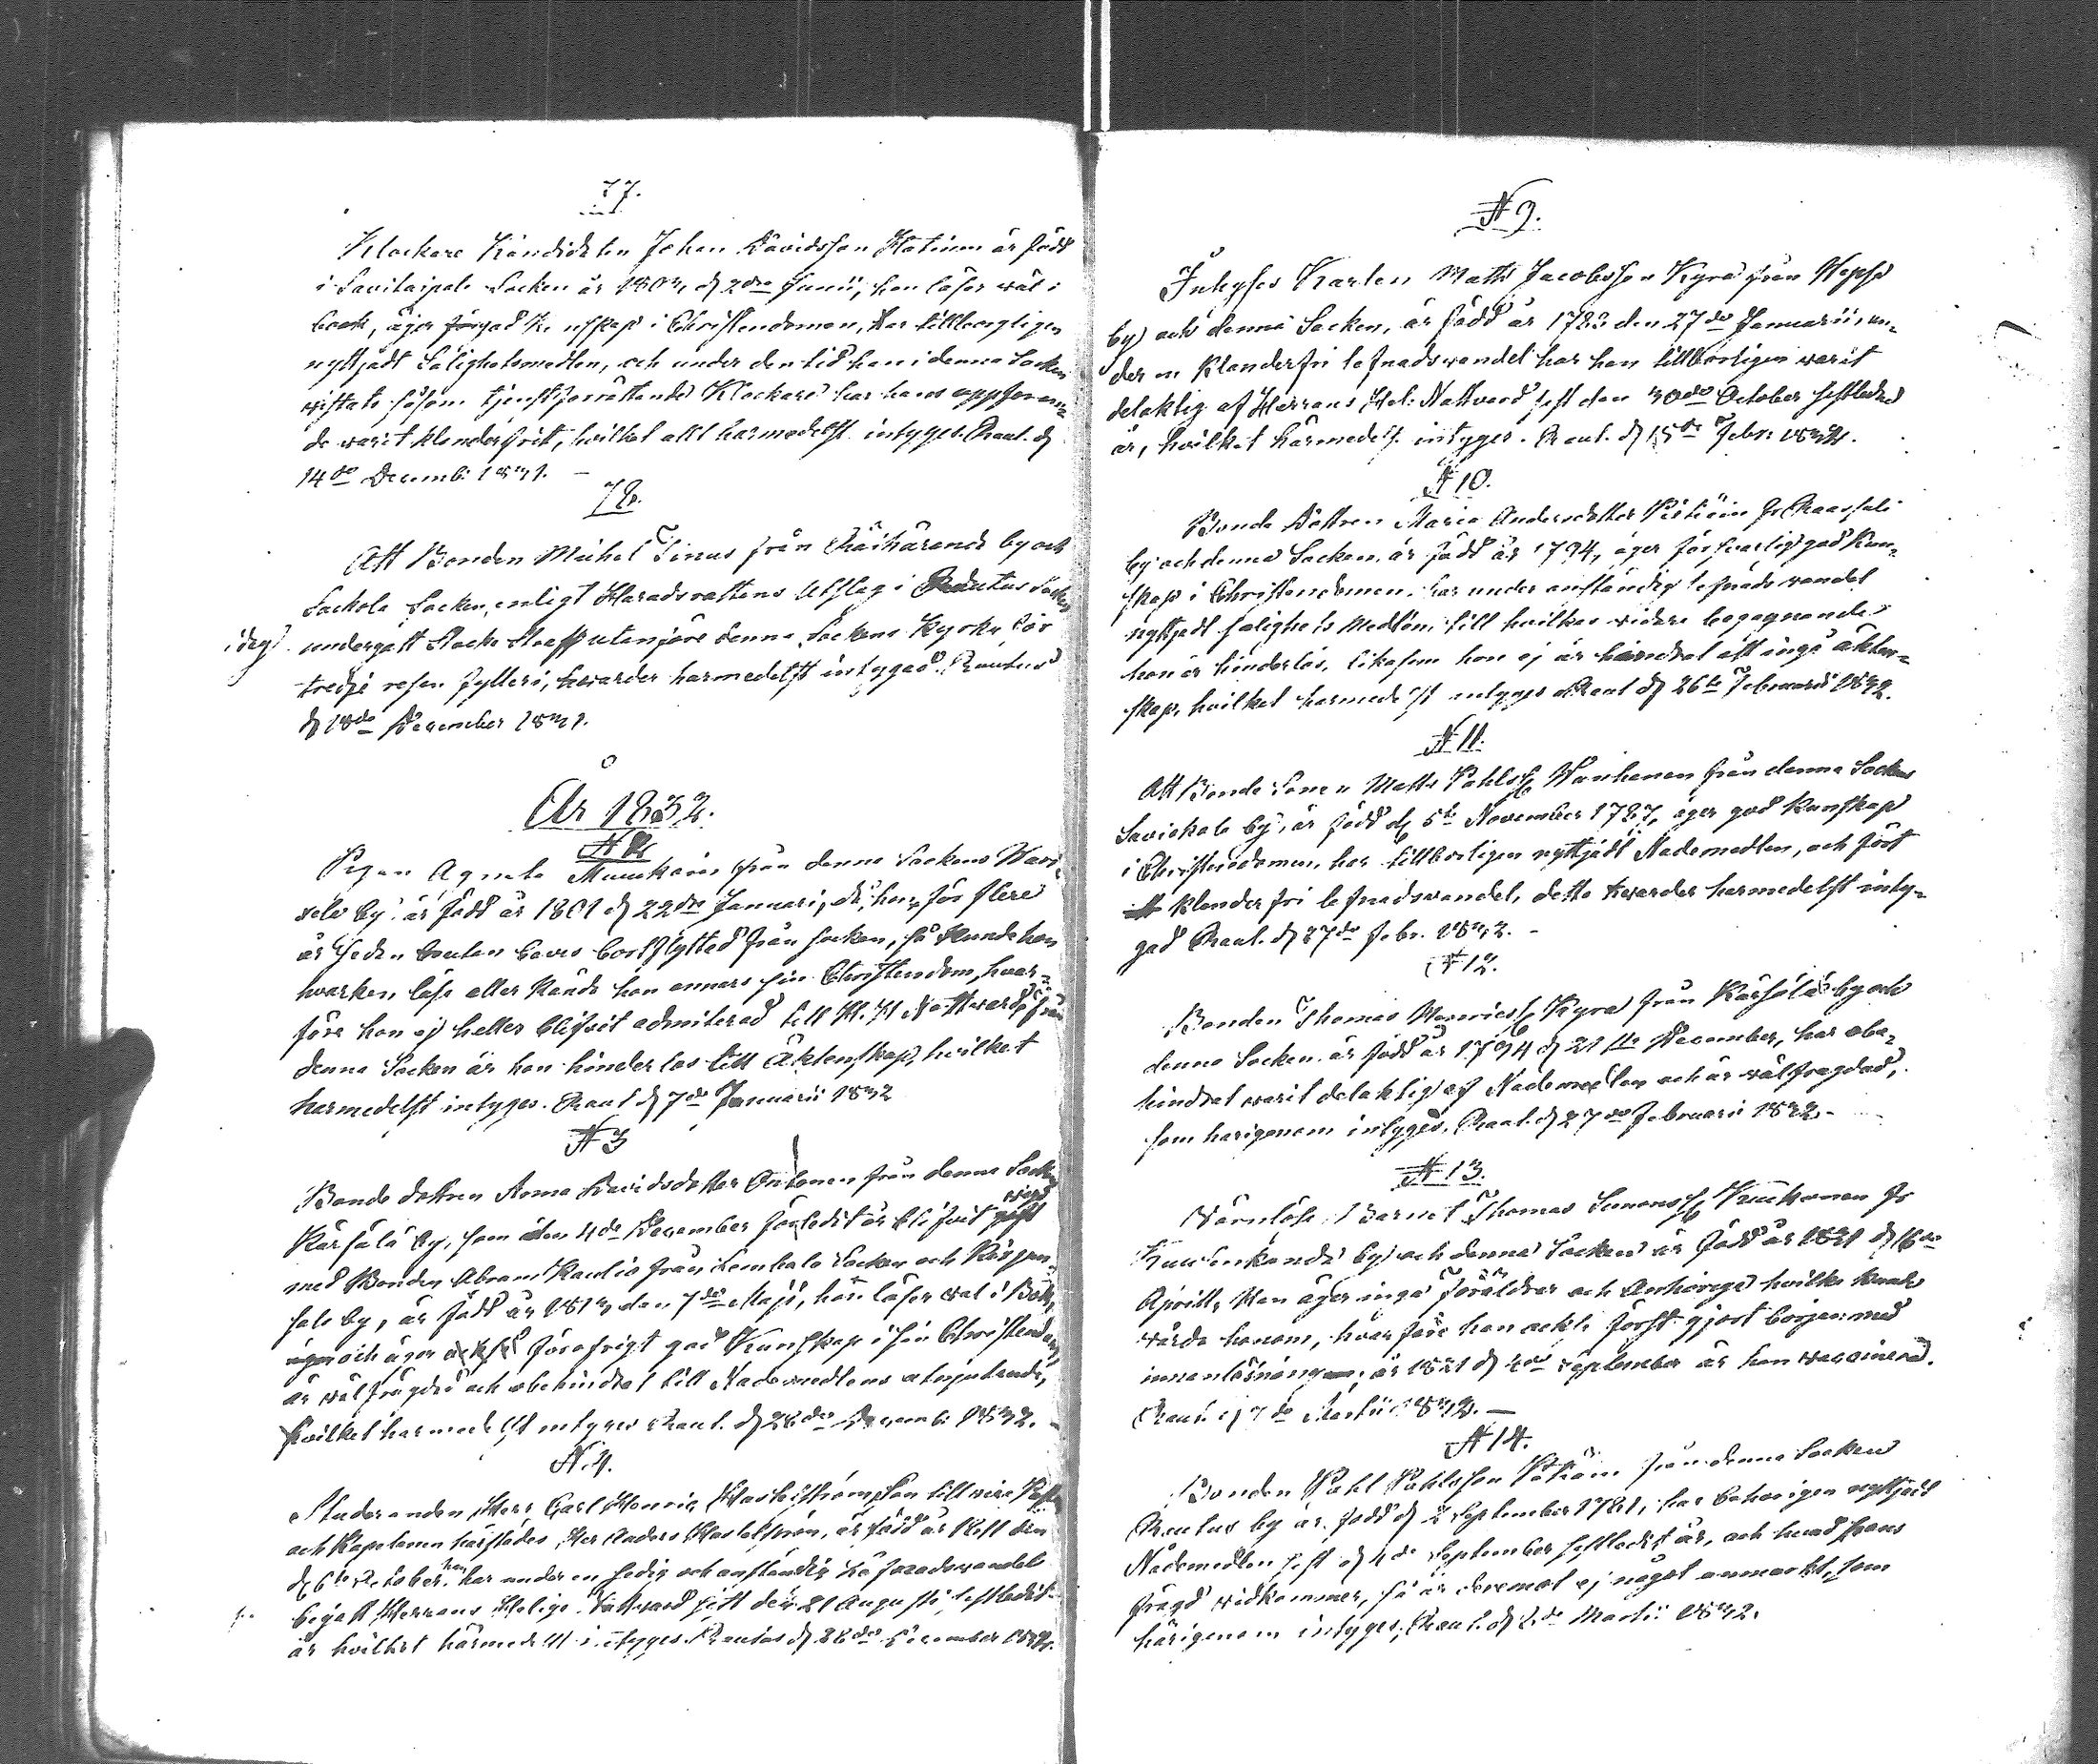 77.
Klockare Kandidaten Johan Davidsson Hatinen är född
i Savitaipale Socken år 1803 d 2dra Junii, han läser väl i
book, äger god Kunskap i Christendomen, har tillbörligen
nyttjadt Salighetsmedlen, och under den tid han i denna Socken
vistats såsom tjenstförrättande Klockare har hans uppföran¬
de varit klanderfritt, hvilket allt härmedelst intyges. Raut. d
14de Decemb: 1831. —
78.
Att Bonden Michel Sinus från Räihäranda by och
Sackola Socken, enligt Häradsrättens Utslag i Rautus Socken
undergått Stock Straff utanföre denna Sockens Kyrka för
tredje resan fylleri, hvarder härmedelst intygad. Rautus
d 18de December 1831.
År 1832.
N 2.
Pigan Agneta Munckain från denna Sockens
by är född år 1801 d 22dra Januari, då hon för flere
år sedan blifvit bortflyttad från socken, så kunde hon
hvarken läsa eller kände hon annars sin Christendom, hvar¬
före hon ej heller blifvit admitterad till H. H. Nattvard, från
denna Socken är hon hinderlös till Äktenskap, hvilket
härmedelst intyges. Raut d 7de Januarii 1832
N 3
Bonde dottren Anna Davidsdotter Ontonen från denna Socken
Kärsälä by, som den 4de December förledit år blifvit vigd
med Bonden Abram Raulio från Sembala Socken och
by, är född år 1813 den 7de Maji, hon läser väl i Bok,
och äger öfrigt god Kunskap i sin Christendom,
är välfrägdad och obehindrad till Nademedlens atnjutande,
hvilket härmedelst intyges Raut. d 28de Decemb: 1832. —
N. 4.
Studeranden Herr Carl Henric Hasselström, Son till
och Kapelanen härstädes Her Anders Hasselström, är född år den
d 6te October, har under en sedig och anständig Lefnadsvandel
begått Herrans Heliga Nattvard sist den 21 Augusti sistledit
år hvilket härmedelst intyges. Rautus d 28de December 1832.
N 9.
Inhyses Karlen Matts Jacobsson Kyrä från Wepsä
by och denna Socken, är född år 1782 den 27de Januarii, un¬
der en klanderfri lefnadsvandel har han tillbörligen varit
delaktig af Herrans Hel: Nattvard sist den 30de October sistledne
år, hvilket härmedelst intyges. Raut. d 15de Febr: 1832.
N 10.
Bonde Dottren Maria Andersdotter Pistiäin fr Raasali
by och denna Socken är född år 1794, äger försvarligt god Kun¬
skap i Christendomen, har under anständig lefnads vandel
nyttjadt salighets Medlen, till hvilkas vidare begagnande
hon är hinderlös, likasom hon ej är hindrad att ingå äkten¬
skap, hvilket härmedelst intyges Raut d 26te Februarii 1832.
N 11.
Att Bonde Sonen Matts Pahlss Wanhanen från denna Socken
Saviokala by, är född d 5te November 1787, äger god Kunskap
i Christendomen, har tillbörligen nyttjadt Nademedlen, och fört
klanderfri lefnadsvandel, detta hvarder härmedelst inty¬
gad Raut. d 27de Febr. 1832. -
N 12.
Bonden Thomas Kyrä från Kärsälä by och
denna Socken är född år 1794 d 21sta December, har obe¬
hindrat varit delaktig af Nademedlen och är välfrägdad,
som härigenom intyges. Raut. d 27de Februarii 1832. -
N 13.
Värnlösa Barnet Thomas Simonss Kuukonen fr
by och denna Socken är född år 1821 d 16de
Aprill, Han äger inga föräldrar och Anhöriga hvilka kunde
vårda honom, hvarföre han ock först gjort början med
innanläsningen; år 1821 d 2dra September är han vaccinerad.
Raut. d 7de Martii 1832. —
N 14.
Bonden Pahl Pahlsson Pätiäin från denna Socken
Rautus by är född d 2 September 1781, har behörigen nyttjadt
Nådemedlen sist d 4de September sistledit år, och hvad hans
frägd vidkommer, så är deremot ej något anmärkt, som
härigenom intyges, Raut. d 8de Martii 1832.